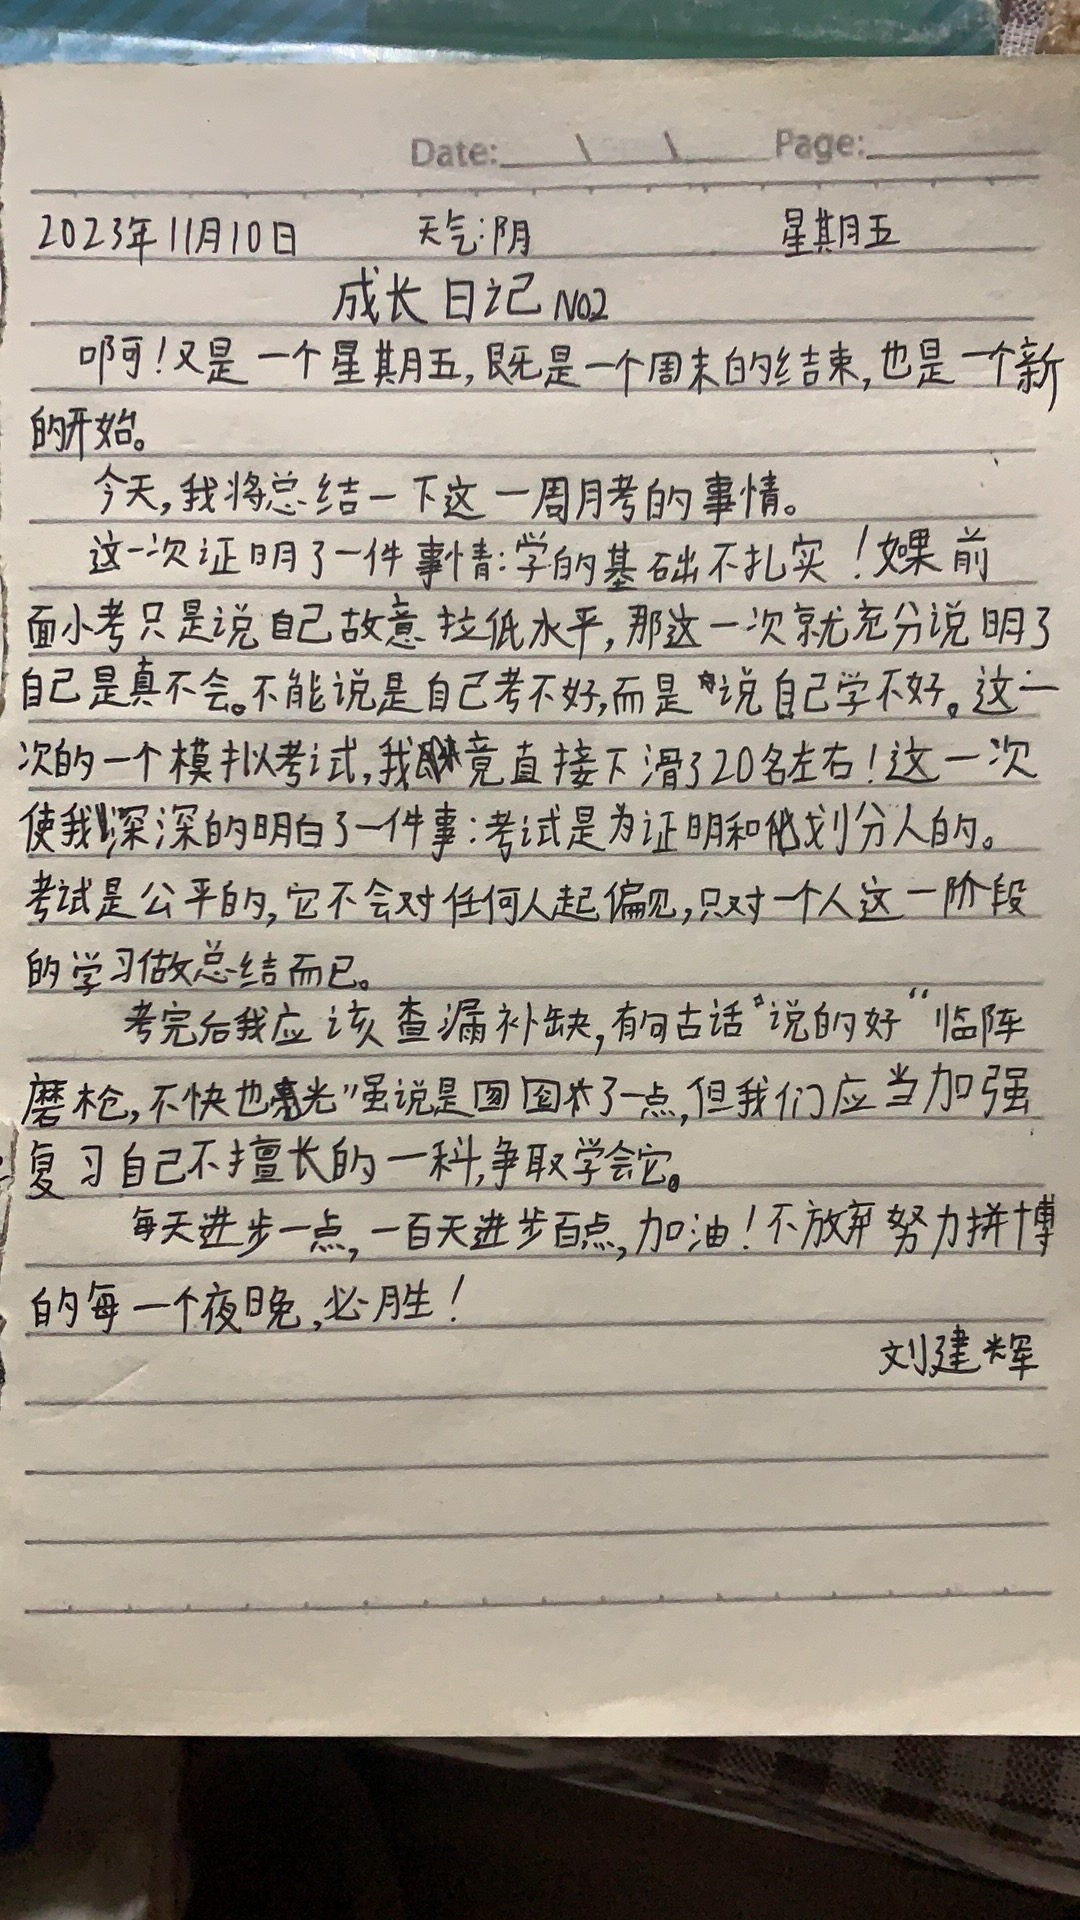 Date: \ \ Page:
2023年11月10日 天气:阴 星期五
成长日记 NO2
啊!又是一个星期五,既是一个周末的结束,也是一个新
的开始。
今天,我将总结一下这一周月考的事情。
这一次证明了一件事情:学的基础不扎实!如果前
面小考只是说自己故意拉低水平,那这一次就充分说明了
自己是真不会。不能说是自己考不好,而是说自己学不好。这一
次的一个模拟考试,我竟直接下滑了20名左右!这一次
使我深深的明白了一件事:考试是为证明和划分人的。
考试是公平的,它不会对任何人起偏见,只对一个人这一阶段
的学习做总结而已。
考完后我应该查漏补缺,有句古话说的好“临阵
磨枪,不快也光”虽说是了一点,但我们应当加强
复习自己不擅长的一科,争取学会它。
每天进步一点,一百天进步百点,加油!不放弃努力拼博
的每一个夜晚,必胜!
刘建辉